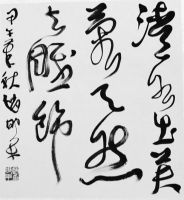 清水出芙
蓉天然
去雕飾
甲午年秋